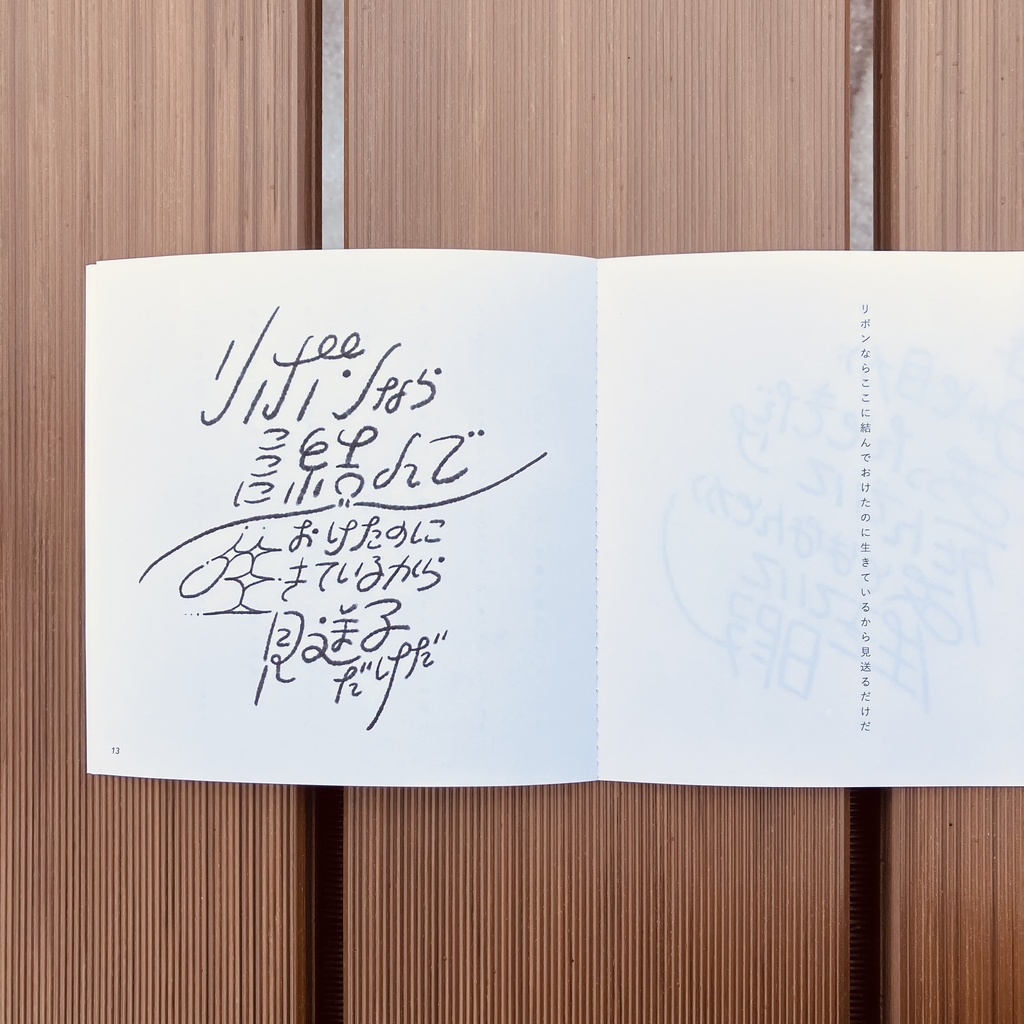 リボンなら
ここに結んで
おけたのに
生きているから
見送る
だけだ
13
リボンならここに結んでおけたのに生きているから見送るだけだ